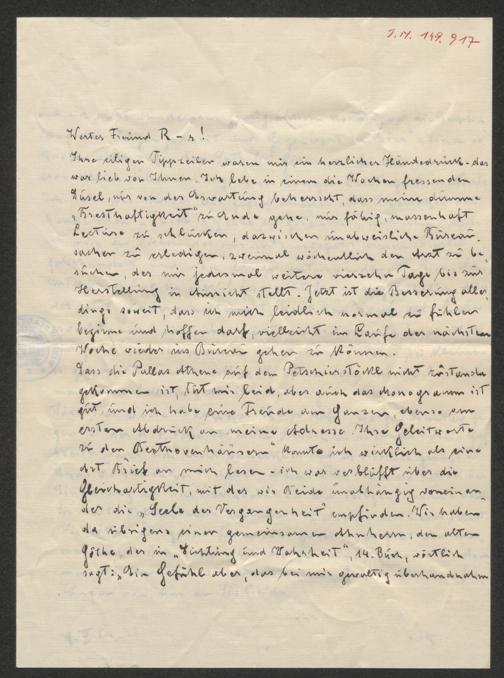 J.N. 149.917
Werter Freund R-r!
Ihre eiligen Tippzeilen waren mir ein herzlicher Händedruck - das
war lieb von Ihnen. Ich lebe in einem die Wochen fressenden
Dusel, nur von der Erwartung beherrscht, dass meine dumme
„Bresthaftigkeit" zu Ende gehe, nur fähig, massenhaft
Lectüre zu schlucken, dazwischen unabweisliche Bureau-
sachen zu erledigen, zweimal wöchentlich den Arzt zu be-
suchen, der mir jedesmal weitere vierzehn Tage bis zur
Herstellung in Aussicht stellt. Jetzt ist die Besserung aller-
dings soweit, dass ich mich leidlich normal zu fühlen
beginne und hoffen darf, vielleicht im Laufe der nächsten
Woche wieder ins Bureau gehen zu können.
Dass die Pallas Athene auf dem Petschierstöckl nicht zustande
gekommen ist, tut mir leid, aber auch das Monogramm ist
gut, und ich habe eine Freude am Ganzen, ebenso am
ersten Abdruck an meine Adresse. Ihre Geleitworte
zu den „Beethovenhäusern" konnte ich wirklich als eine
Art Brief an mich lesen - ich war verblüfft über die
Gleichartigkeit, mit der wir Beide unabhängig voneinan-
der die „Seele der Vergangenheit" empfinden. Wir haben
da übrigens einen gemeinsamen Ahnherrn, den alten
Göthe, der in „Dichtung und Wahrheit", 14. Buch, wörtlich
sagt: „Ein Gefühl aber, das bei mir gewaltig überhandnahm